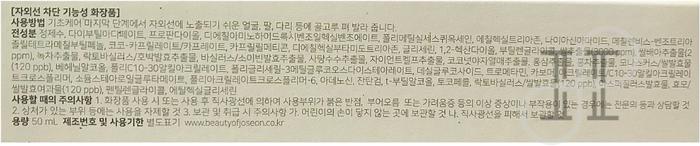 [자외선 차단 기능성 화장품]
사용방법 기초케어 마지막 단계에서 자외선에 노출되기 쉬운 얼굴, 팔, 다리 등에 골고루 펴 발라 줍니다.
전성분 정제수, 다이부틸아디페이트, 프로판다이올, 디에칠아미노하이드록시벤조일헥실벤조에이트, 폴리메틸실세스퀴옥세인, 에칠헥실트리아존, 나이아신아마이드, 메칠렌비스-벤조트리아
졸릴테트라메칠부틸페놀, 코코-카프릴레이트/카프레이트, 카프릴릴메티콘, 디에칠헥실부타미도트리아존, 글리세린, 1,2-헥산다이올, 부틸렌글라이콜,
pm), 녹차추출물, 락토바실러스/호박발효추출물, 바실러스/소이빈발효추출물, 사탕수수추출물, 자이언트켈프추출물, 코코넛야자열매추출물,
(120 ppb), 베헤닐알코올, 폴리C10-30알킬아크릴레이트, 폴리글리세릴-3메틸글루코오스다이스테아레이트, 데실글루코사이드, 트로메타민, 카보머,
트크로스폴리머, 소듐스테아로일글루타메이트, 폴리아크릴레이트크로스폴리머-6, 아데노신, 잔탄검, t-부틸알코올, 토코페롤, 락토바실러스/쌀발효물(120 ppb),
쌀발효여과물(120 ppb), 펜틸렌글라이콜, 에틸헥실글리세린
사용할 때의 주의사항 1. 화장품 사용 시 또는 사용 후 직사광선에 의하여 사용부위가 붉은 반점, 부어오름 또는 가려움증 등의 이상 증상이나 부작용이 있는 경우에는 전문의 등과 상담할 것
2. 상처가 있는 부위 등에는 사용을 자제할 것 3. 보관 및 취급 시 주의사항 가. 어린이의 손이 닿지 않는 곳에 보관할 것 나. 직사광선을 피해서 보관할 것
용량 50 mL 제조번호 및 사용기한 별도표기 www.beautyofjoseon.co.kr